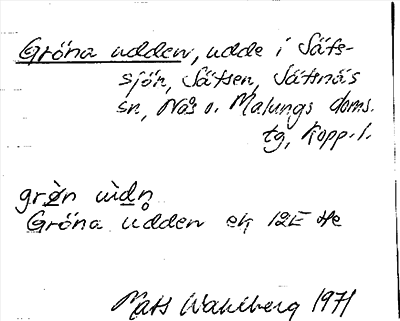 Gröna udden, udde i Säts-
sjön, Sätsen, Sätsnäs
sn, Nås o. Malungs doms.
tg, Kopp. l.
grø̀n ùdn̥
Gröna udden ek 12E
Mats Wahlberg 1971